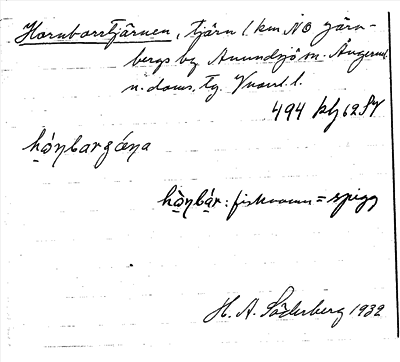 Hornborrtjärnen, tjärn 1 km NO Järn-
bergs by Anundsjö sn. Ångerml.
n. doms. tg.
494 khj 62 SV
hó̱ṇbargáṇa
hò̱ṇbá̱r: fisknamn = spigg
H. A. Söderberg 1932